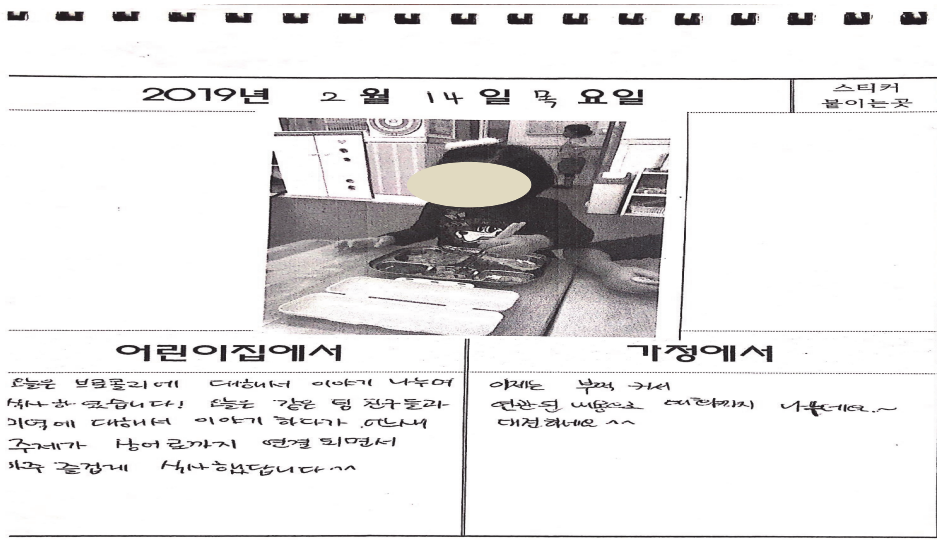 2019년 2월 14일 목요일
스티커
붙이는곳
어린이집에서
오늘은 브로콜리에 대해서 이야기 나누며
식사하였습니다! 오늘은 같은 팀 친구들과
미역에 대해서 이야기 하다가 어느새
주제가 상어로까지 연결되면서
아주 즐겁게 식사했답니다^^
가정에서
이제는 부쩍 커서
연관된 내용으로 대화까지 나누네요.~
대견하네요 ^^